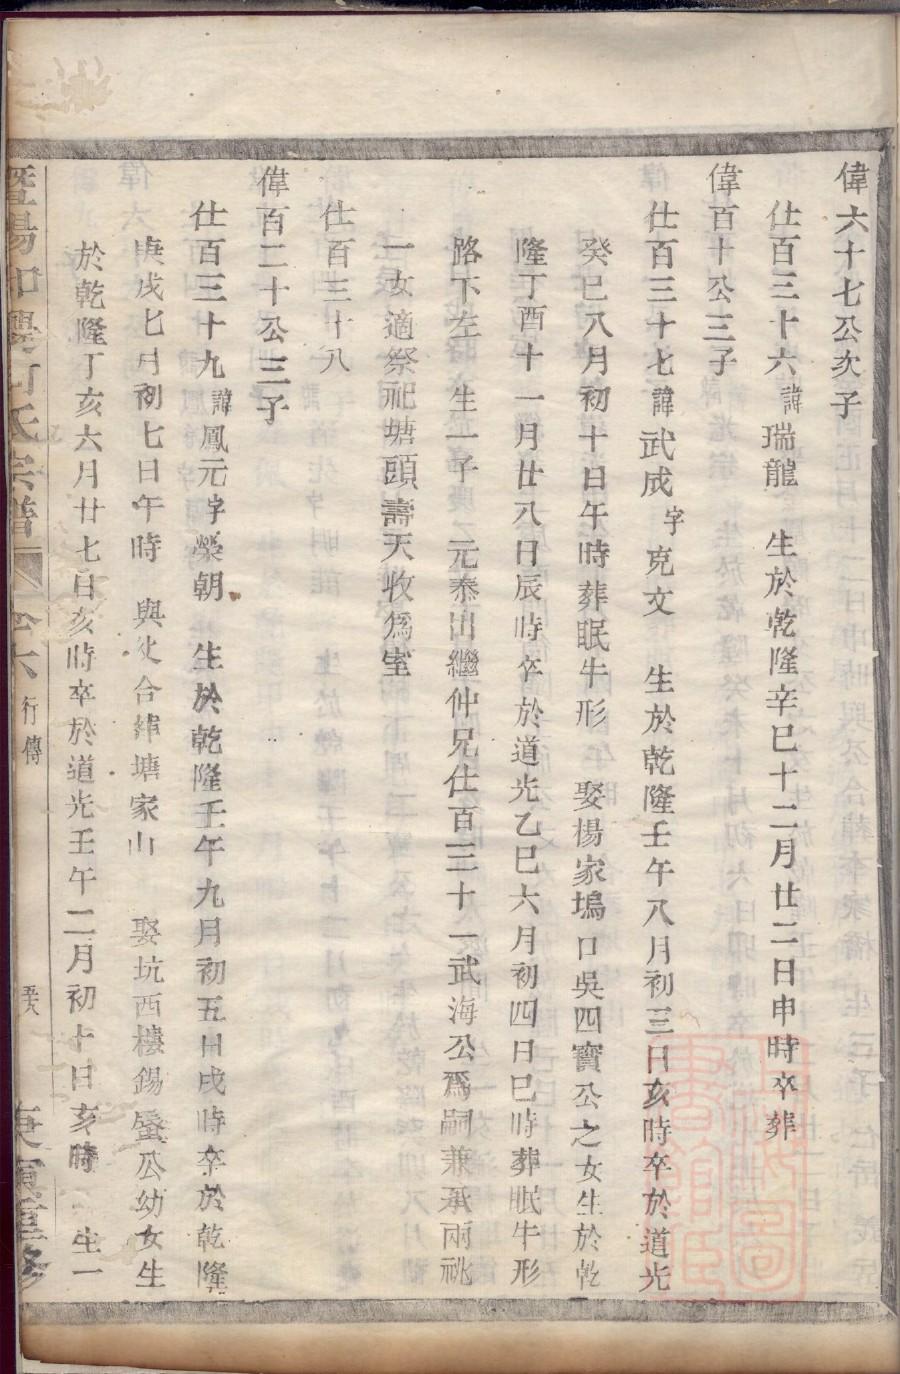 偉六十七公次子
仕百三十六諱瑞龍 生於乾隆辛巳十二月廿二日申時卒葬
偉百十公三子
仕百三十七諱武成字克文 生於乾隆壬午八月初三日亥時卒於道光
癸巳八月初十日午時葬眠牛形 娶楊家塢口吳四寶公之女生於乾
隆丁酉十一月廿八日辰時卒於道光乙巳六月初四日巳時葬眠牛形
路下左 生一子 元泰出繼仲兄仕百三十一武海公爲嗣兼承兩祧
一女適祭祀塘頭壽天收爲室
仕百三十八
偉百二十公三子
仕百三十九諱鳳元字榮朝 生於乾隆壬午九月初五日戌時卒於乾隆
庚戌七月初七日午時 與父合葬塘家山 娶坑西樓錫蜃公幼女生
於乾隆丁亥六月廿七日亥時卒於道光壬午二月初十日亥時 生一
宗譜
行傳